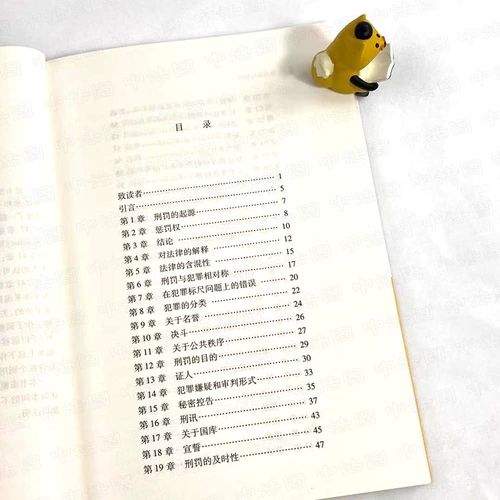 目 录
致读者 1
引言 5
第 1 章 刑罚的起源 7
第 2 章 惩罚权 8
第 3 章 结论 10
第 4 章 对法律的解释 12
第 5 章 法律的含混性 15
第 6 章 刑罚与犯罪相对称 17
第 7 章 在犯罪标尺问题上的错误 20
第 8 章 犯罪的分类 22
第 9 章 关于名誉 24
第 10 章 决斗 26
第 11 章 关于公共秩序 27
第 12 章 刑罚的目的 29
第 13 章 证人 30
第 14 章 犯罪嫌疑和审判形式 33
第 15 章 秘密控告 35
第 16 章 刑讯 37
第 17 章 关于国库 43
第 18 章 宣誓 45
第 19 章 刑罚的及时性 47